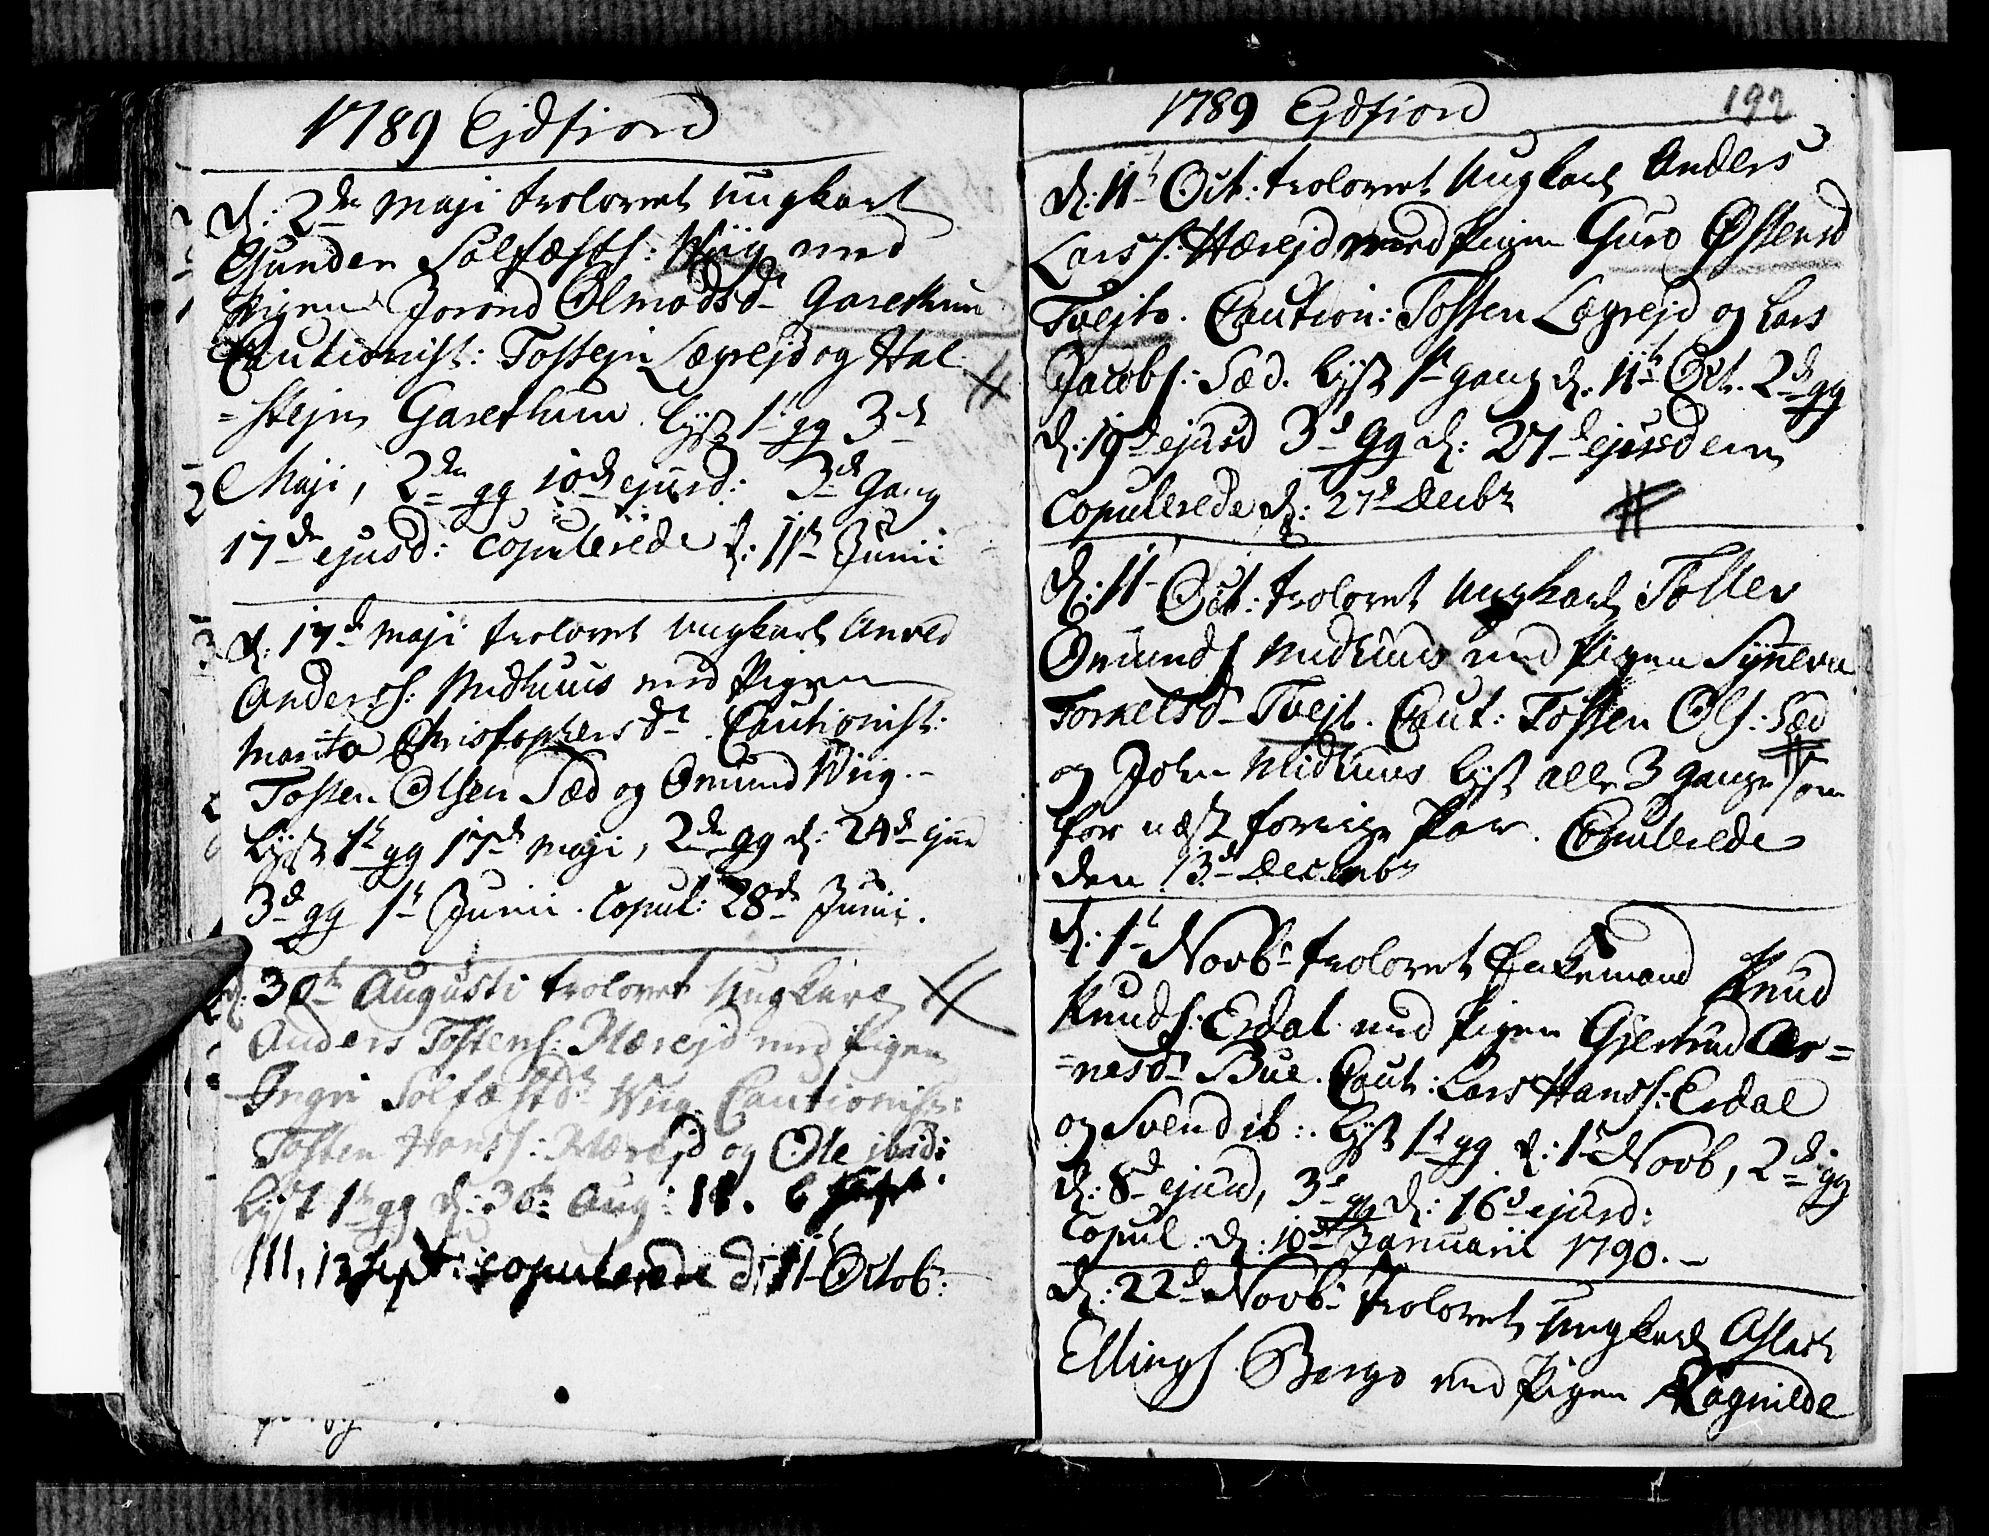 1789 Ejdfiord
d: 2den Maji trolovet Ungkarl
Gunder Sølfæsts: Wiig med
Pigen Jorond Olmodsdr Garethun
Cautionist: Tostejn Lægrejd og Hal-
=stejn Garethun. lyst 1te gg 3de
Maji, 2den gg 10de ejusd: 3de Gang
17den ejusd: Copulerede d: 11te Junii
d. 17de Maji trolovet Ungkarl
Anderss: Midhuus med Pigen
Marita Christophersdr. Cautionist:
Tosten Olsen Sæd og Omund Wiig.-
lyst 1te gg 17de Maji, 2den gg d: 24de ejusd
3de gg 1te Junii. Copul: 28de Junii.
d: 30te Augusti trolovet Ungkarl
Anders Tostens: Hærejd med Pigen
Ingri Sølfæstdr Wiig Cautionist:
Tosten Hanss: Hærejd og Ole ibid:
lyst 1te gg d: 30te Aug: 11. 6 Sept.
111, 13 Sept: copulerede d: 11te Octob:
1789 Ejdfiord
192
d: 11te Oct: trolovet Ungkarl Anders
Larss: Hærejd med Pigen Guro Østensd
Tvejto. Caution: Tosten Lægrejd og Lars
Jacobs: Sæd. lyst 1te gang d. 11te Oct. 2de gg
d: 19de ejusd 3de gg d: 27de ejusdem
Copulerede d: 27de Decbr
d: 11te Oct: trolovet Ungkarl Tosten
Omunds Midhuus med Pigen Synneva
Torkelsdr Tvejt. Caut: Tosten Ols: Sæd
og John Midhuus lyst alle 3 gange som
for næst forrige Par. Copulerede
den 13de Decembr
d: 1te Novbr trolovet Enkemand Knud
Knuds: Erdal med Pigen Gjertrud Ar=
=nesdr Bue. Caut: Lars Hanss: Erdal
og Svend ib:. lyst 1te gg d: 1te Novb, 2de gg
d: 8de ejusd, 3de gg d: 16de ejusd:
Copul: d: 10de Januarii 1790.-
d: 22de Novbr trolovet Ungkarl Aslak
Ellings Berge med Pigen Ragnilde